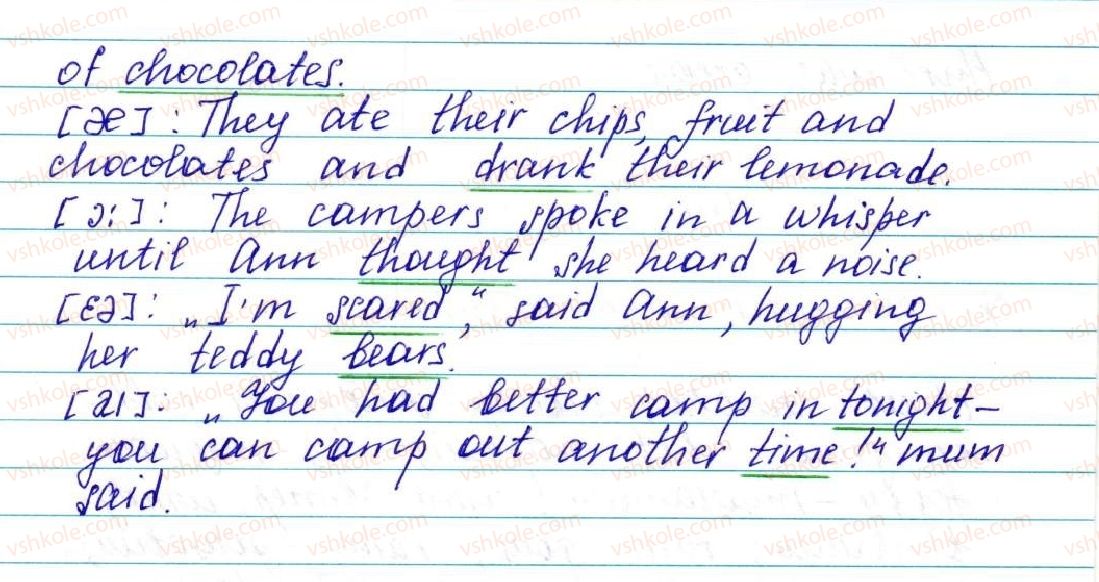 of chocolates.
[æ]: They ate their chips, fruit and
chocolates and drank their lemonade.
[ɔ:]: The campers spoke in a whisper
until Ann thought she heard a noise.
[ɛə]: „I'm scared“, said Ann, hugging
her teddy bears.
[aı]: „You had better camp in tonight–
you can camp out another time!“ mum
said.